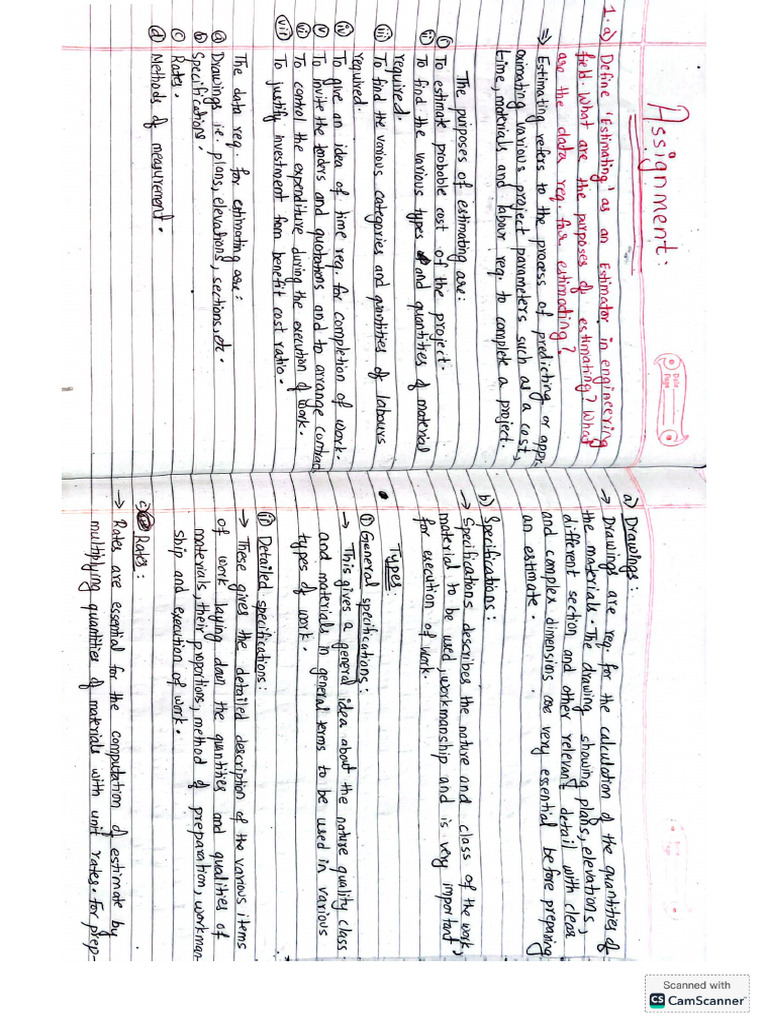 Assignment:
Date
Page
1. a) Define 'Estimating' as an Estimator in engineering
field. What are the purposes of estimating? What
are the data req. for estimating?
⇒ Estimating refers to the process of predicting or appr
oximating various project parameters such as a cost,
time, materials and labour req. to complete a project.
The purposes of estimating are:
(i) To estimate probable cost of the project.
(ii) To find the various types and quantities of material
required.
(iii) To find the various categories and quantities of labours
required.
(iv) To give an idea of time req. for completion of work.
(v) To invite the tenders and quotations and to arrange contract
(vi) To control the expenditure during the execution of work.
(vii) To justify investment from benefit cost ratio.
The data req. for estimating are:
(a) Drawings i.e. plans, elevations, sections, etc.
(b) Specifications.
(c) Rates.
(d) Methods of measurement.
a) Drawings:
→ Drawings are req. for the calculation of the quantities of
the materials. The drawing showing plans, elevations,
different section and other relevant detail with clear
and complex dimensions are very essential before preparing
an estimate.
b) Specifications:
→ Specifications describes the nature and class of the work,
material to be used, workmanship and is very important
for execution of work.
Types:
(i) General specifications:
→ This gives a general idea about the nature quality class
and materials in general terms to be used in various
types of work.
(ii) Detailed specifications:
→ These gives the detailed description of the various items
of work laying down the quantities and qualities of
materials, their proportions, method of preparation, workman-
ship and execution of work.
c) Rates:
→ Rates are essential for the computation of estimate by
multiplying quantities of materials with unit rates. For prep-
Scanned with
CS CamScanner